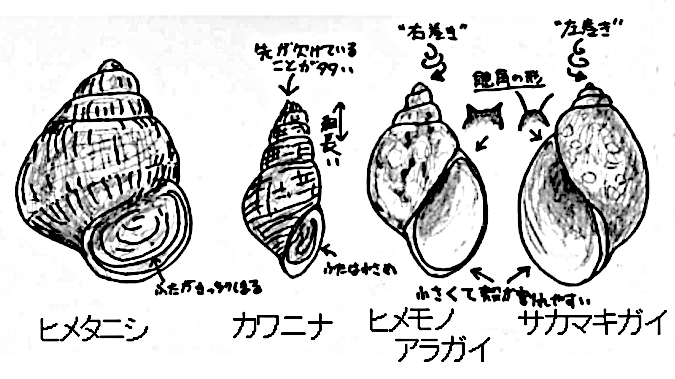 "右巻き"
"左巻き"
先が欠けている
ことが多い
触角の形
細長い
ふたがきっちりしまる
ふたは小さめ
小さくて殻が割れやすい
ヒメタニシ
カワニナ
ヒメモノ
アラガイ
サカマキガイ